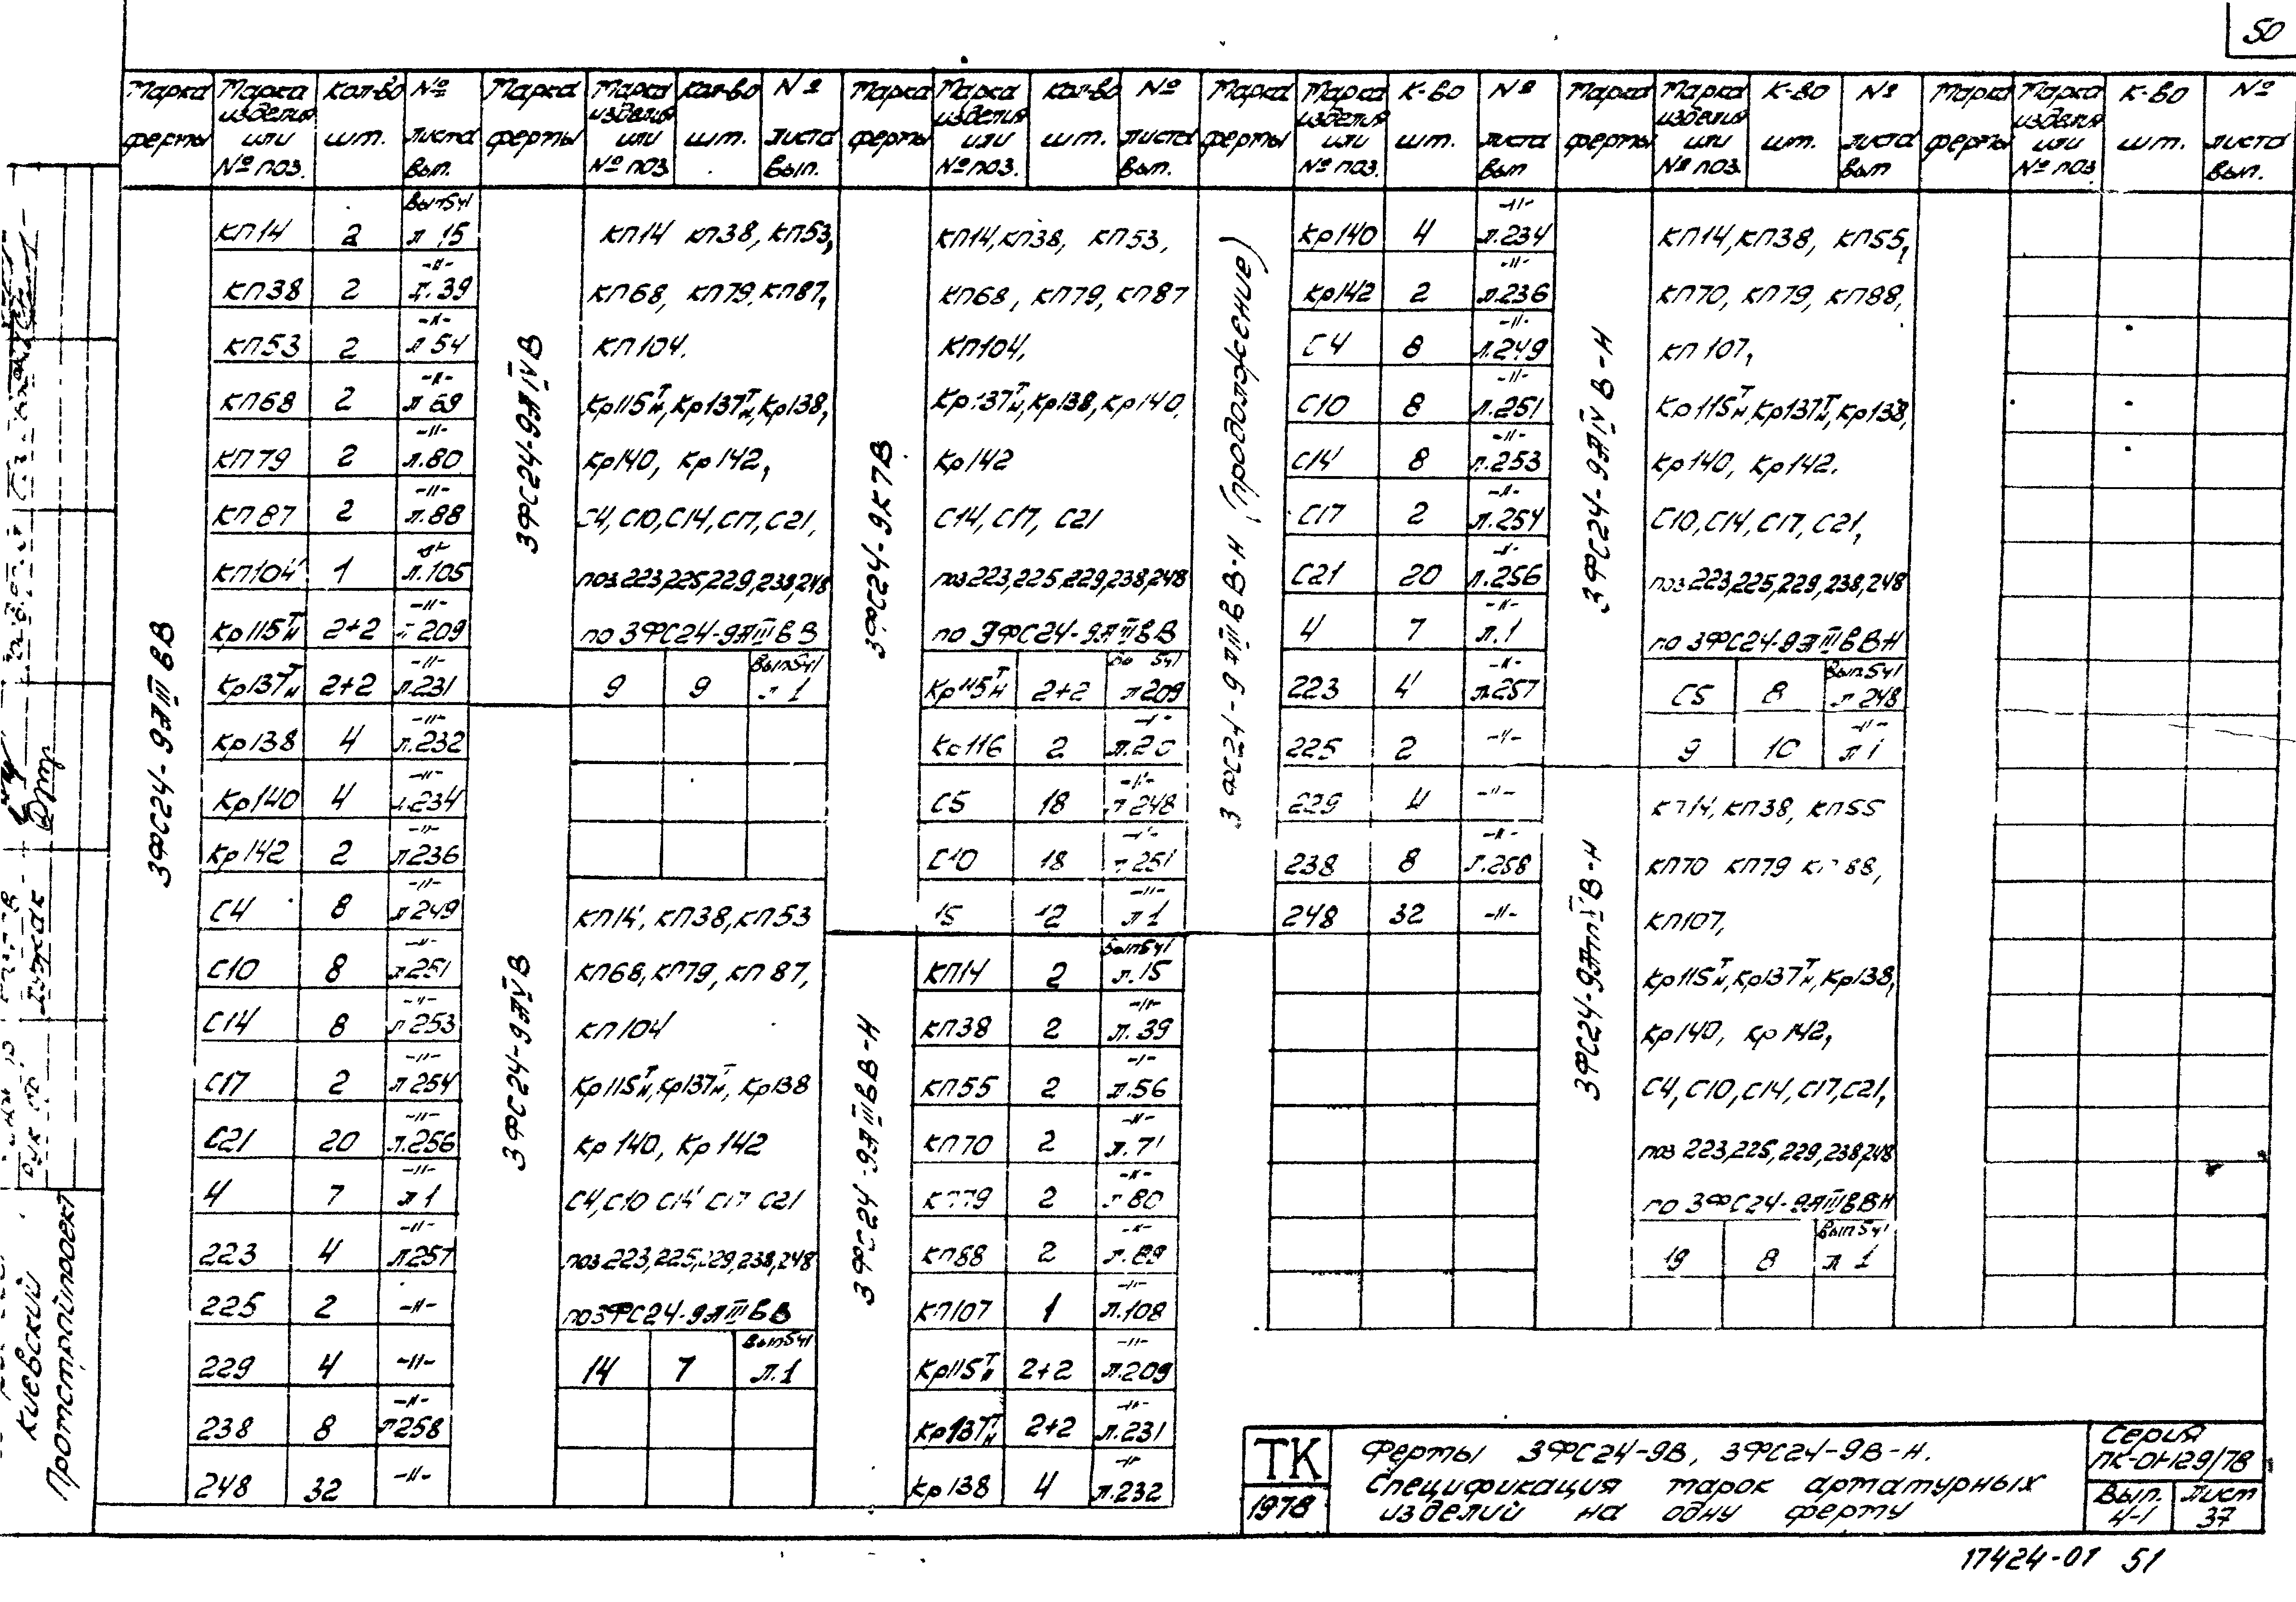 50
Марка фермы | Марка изделия или № поз. | Кол-во шт. | № листа вып.
Марка фермы | Марка изделия или № поз | Кол-во шт. | № листа вып.
Марка фермы | Марка изделия или № поз. | Кол-во шт. | № листа вып.
Марка фермы | Марка изделия или № поз. | К-во шт. | № листа вып
Марка фермы | Марка изделия или № поз | К-во шт. | № листа вып
Марка фермы | Марка изделия или № поз | К-во шт. | № листа вып.
3ФС24-9АIIIвВ
КП14 2 Вып5ч1 л 15
КП38 2 -"- л.39
КП53 2 -"- л 54
КП68 2 -"- л 69
КП79 2 -"- л.80
КП87 2 -"- л.88
КП104 1 -"- л.105
Кр115 т/н 2+2 -"- л 209
Кр137 т/н 2+2 -"- л.231
Кр138 4 -"- л.232
Кр140 4 -"- л.234
Кр142 2 -"- л 236
С4 8 -"- л 249
С10 8 -"- л 251
С14 8 -"- л 253
С17 2 -"- л 254
С21 20 -"- л.256
4 7 -"- л 1
223 4 -"- л257
225 2 -"-
229 4 -"-
238 8 -"- л258
248 32 -"-
3ФС24-9АIVВ
КП14 КП38, КП53,
КП68, КП79, КП87,
КП104.
Кр115 т/н, Кр137 т/н, Кр138,
Кр140, Кр142,
С4, С10, С14, С17, С21,
поз 223, 225, 229, 238, 248
по 3ФС24-9АIIIвВ
9 9 Вып5ч1 л 1
3ФС24-9АVВ
КП14, КП38, КП53
КП68, КП79, КП87,
КП104
Кр115 т/н, Кр137 т/н, Кр138
Кр140, Кр142
С4, С10 С14 С17 С21
поз 223, 225, 229, 238, 248
по 3ФС24-9АIIIвВ
14 7 Вып5ч1 л.1
3ФС24-9К7В
КП14, КП38, КП53,
КП68, КП79, КП87
КП104,
Кр137 т/н, Кр138, Кр140,
Кр142
С14, С17, С21
поз 223, 225, 229, 238, 248
по 3ФС24-9АIIIвВ
Кр115 т/н 2+2 5ч1 л 209
116 2 -"-
С5 18 -"- л 248
С10 18 -"- л 251
15 12 -"- л 1
3ФС24-9АIIIвВ-Н
КП14 2 Вып5ч1 л.15
КП38 2 -"- л.39
КП55 2 -"- л.56
КП70 2 -"- л.71
КП79 2 -"- л 80
КП88 2 -"- л.89
КП107 1 -"- л.108
Кр115 т/н 2+2 -"- л.209
Кр137 т/н 2+2 -"- л.231
Кр138 4 -"- л.232
3ФС24-9АIIIвВ-Н (продолжение)
Кр140 4 -"- л.234
Кр142 2 -"- л.236
С4 8 -"- л.249
С10 8 -"- л.251
С14 8 -"- л.253
С17 2 -"- л.254
С21 20 -"- л.256
4 7 -"- л.1
223 4 -"- л.257
225 2 -"-
229 4 -"-
238 8 -"- л.258
248 32 -"-
3ФС24-9АIVВ-Н
КП14, КП38, КП55,
КП70, КП79, КП88,
КП107,
Кр115 т/н, Кр137 т/н, Кр138,
Кр140, Кр142.
С10, С14, С17, С21,
поз 223, 225, 229, 238, 248
по 3ФС24-9АIIIвВН
С5 8 Вып5ч1 л 248
9 10 -"- л 1
КП14, КП38, КП55
КП70 КП79 КП88,
КП107,
Кр115 т/н, Кр137 т/н, Кр138,
Кр140, Кр142,
С4, С10, С14, С17, С21,
поз 223, 225, 229, 238, 248
по 3ФС24-9АIIIвВН
19 8 Вып5ч1 л 1
Киевский
Промстройпроект
ТК
1978
Фермы 3ФС24-9В, 3ФС24-9В-Н.
Спецификация марок арматурных
изделий на одну ферму
Серия
ПК-01-129/78
Вып. 4-1
Лист 37
17424-01 51